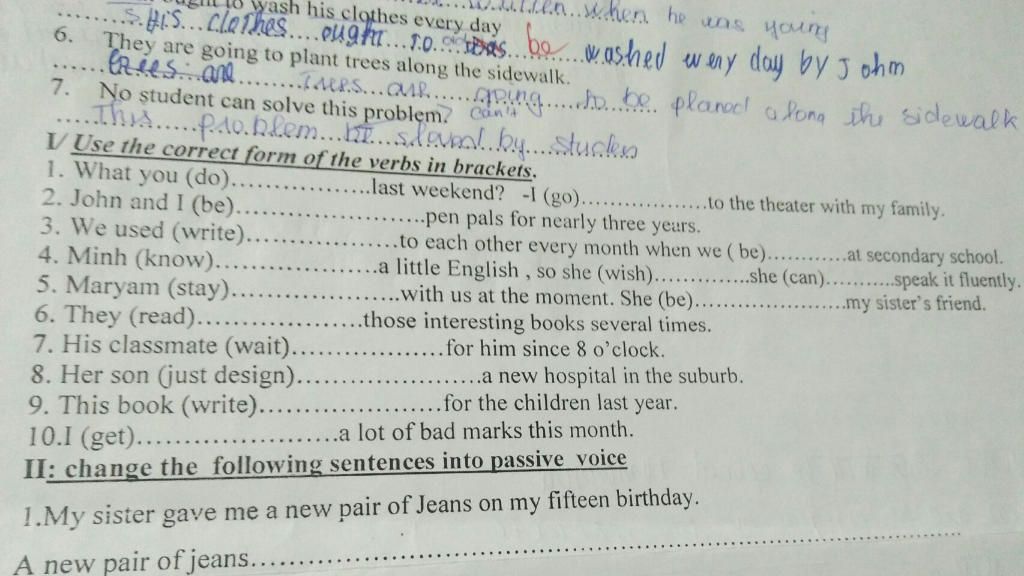 when he was young
to wash his clothes every day
5. His clothes ought to be washed wery day by J ohm
6. They are going to plant trees along the sidewalk.
trees are Trees are going to be planed along the sidewalk
7. No student can solve this problem? can't
This problem be by
I/ Use the correct form of the verbs in brackets.
1. What you (do)..................last weekend? -I (go)..................to the theater with my family.
2. John and I (be)........................pen pals for nearly three years.
3. We used (write)...................to each other every month when we ( be)............at secondary school.
4. Minh (know)....................a little English , so she (wish).............she (can)..........speak it fluently.
5. Maryam (stay).....................with us at the moment. She (be)...................my sister's friend.
6. They (read).....................those interesting books several times.
7. His classmate (wait)...................for him since 8 o'clock.
8. Her son (just design).......................a new hospital in the suburb.
9. This book (write).......................for the children last year.
10.I (get).........................a lot of bad marks this month.
II: change the following sentences into passive voice
1.My sister gave me a new pair of Jeans on my fifteen birthday.
A new pair of jeans................................................................................